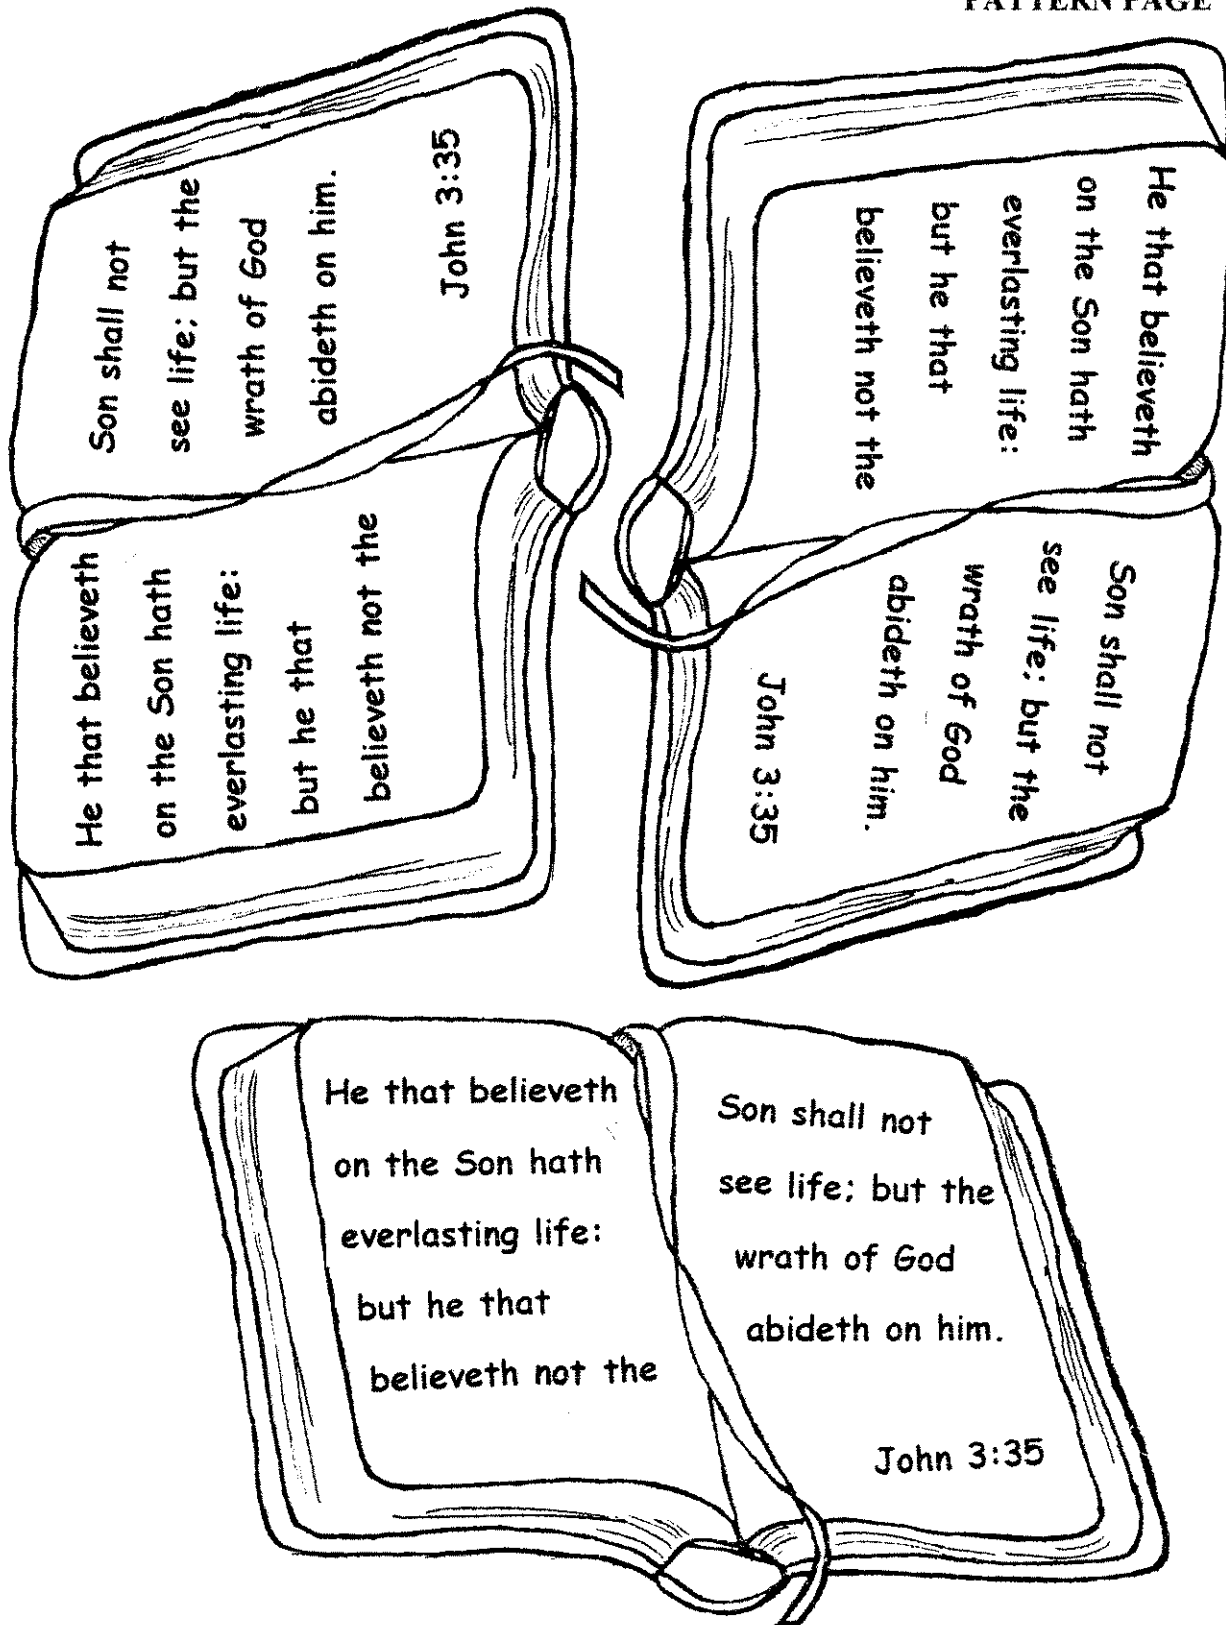 PATTERN PAGE
He that believeth
on the Son hath
everlasting life:
but he that
believeth not the
Son shall not
see life; but the
wrath of God
abideth on him.
John 3:35
He that believeth
on the Son hath
everlasting life:
but he that
believeth not the
Son shall not
see life; but the
wrath of God
abideth on him.
John 3:35
He that believeth
on the Son hath
everlasting life:
but he that
believeth not the
Son shall not
see life; but the
wrath of God
abideth on him.
John 3:35